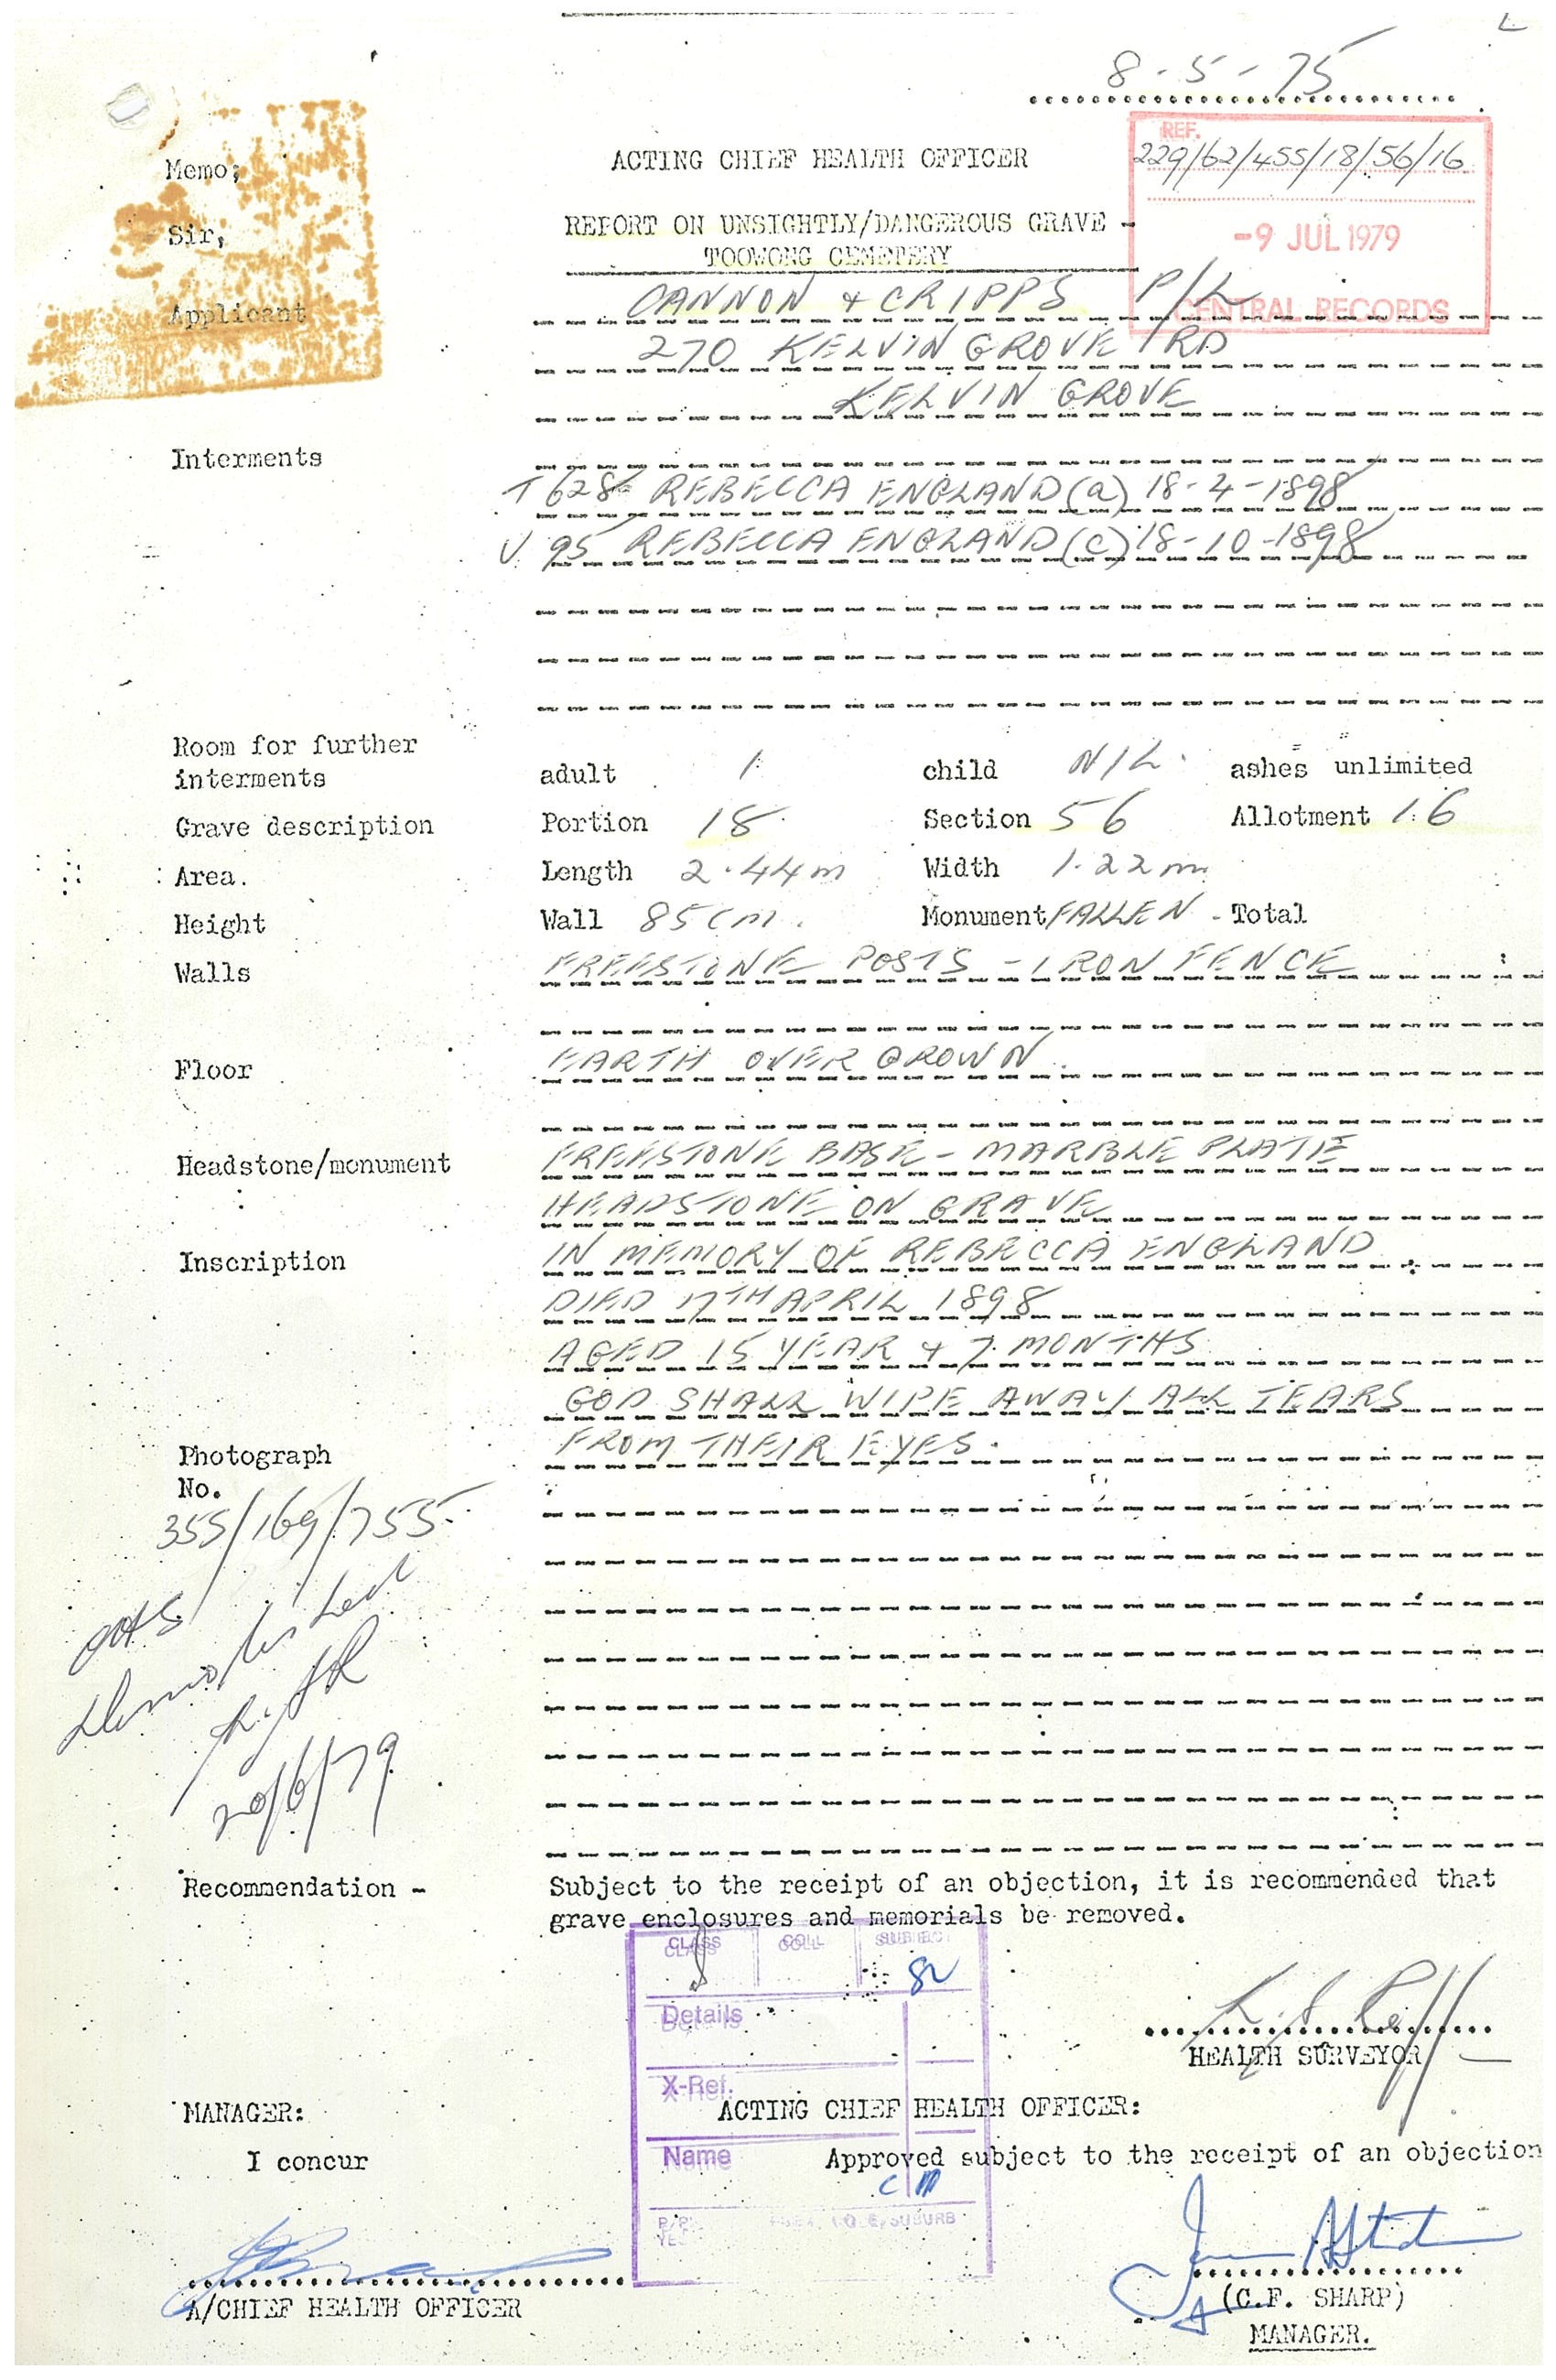 8-5-75
REF.
229/62/455/18/56/16
-9 JUL 1979
CENTRAL RECORDS
Memo;
ACTING CHIEF HEALTH OFFICER
Sir,
REPORT ON UNSIGHTLY/DANGEROUS GRAVE -
TOOWONG CEMETERY
Applicant
CANNON & CRIPPS P/L
270 KELVIN GROVE RD
KELVIN GROVE
Interments
T 628 REBECCA ENGLAND (a) 18-4-1898
V 95 REBECCA ENGLAND (c) 18-10-1898
Room for further
interments adult 1 child NIL. ashes unlimited
Grave description Portion 18 Section 56 Allotment 16
Area. Length 2.44m Width 1.22m
Height Wall 85cm. Monument FALLEN - Total
Walls FREESTONE POSTS - IRON FENCE
Floor EARTH OVER GROWN.
Headstone/monument FREESTONE BASE - MARBLE PLATE
HEADSTONE ON GRAVE
Inscription IN MEMORY OF REBECCA ENGLAND
DIED 17TH APRIL 1898
AGED 15 YEAR & 7 MONTHS
GOD SHALL WIPE AWAY ALL TEARS
Photograph FROM THEIR EYES.
No.
355/169/755
Demolished
20/6/79
Recommendation - Subject to the receipt of an objection, it is recommended that
grave enclosures and memorials be removed.
CLASS COLL SUBJECT
Details
X-Ref.
Name
HEALTH SURVEYOR
MANAGER: ACTING CHIEF HEALTH OFFICER:
I concur Approved subject to the receipt of an objection
A/CHIEF HEALTH OFFICER
(C.F. SHARP)
MANAGER.